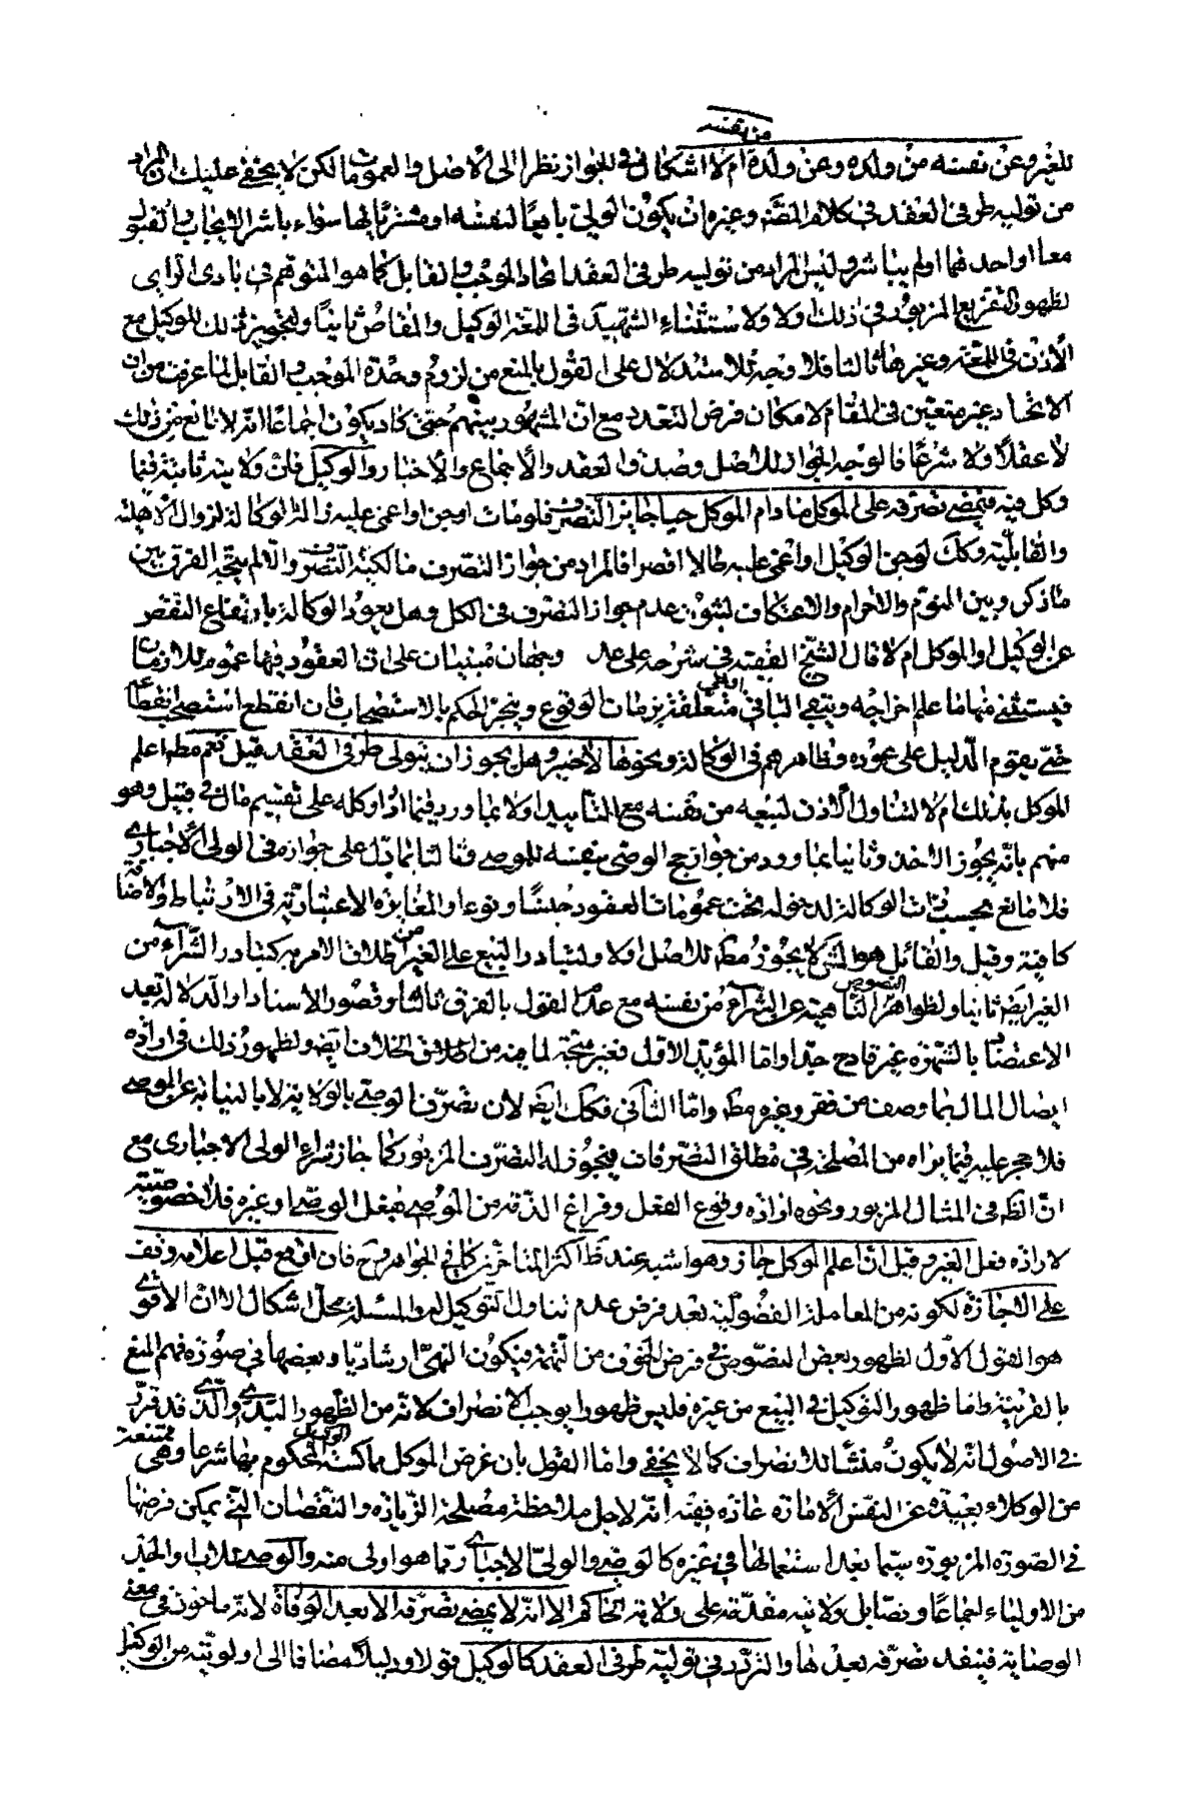 من نفسه
للغير وعن نفسه من ولده وعن ولده ام لا اشكال في الجواز نظرا الى الأصل والعمومات لكن لا يخفى عليك ان المراد
من توليه طرفى العقد في كلام المصّ وغيره ان يكون الولى بايعا لنفسه او مشتريا لها سواء باشر الايجاب والقبول
معا او احدهما او لم يباشر وليس المراد من توليه طرفى العقد اتحاد الموجب والقابل كما هو المتوهم في بادى الراى
لظهور التفريع المزبور في ذلك اولا ولاستثناء الشهيد في اللمعة الوكيل والمقاص ثانيا ولتجويز ذلك للوكيل مع
الأذن في اللمعة وغيرها ثالثا فلا وجه للاستدلال على القول بالمنع من لزوم وحدة الموجب والقابل لما عرفت من ان
الاتحاد غير متعين في المقام لامكان فرض التعدد مع ان المشهور بينهم حتى كاد يكون اجماعا انه لا مانع من ذلك
لا عقلا ولا شرعا فالوجه الجواز للاصل وصدق العقد والاجماع والأخبار والوكيل فان ولايته ثابتة فيما
وكل فيه فيمضى تصرفه على الموكل ما دام الموكل حيا جايز التصرف فلو مات او جن او اغمى عليه زالت الوكالة لزوال الأهلية
والقابلية وكك لو جن الوكيل او اغمى عليه طال او قصر فالمراد من جواز التصرف مالكية التصرف والا لم يتجه الفرق بين
ما ذكر وبين النوم والاحرام والاعتكاف لثبوت عدم جواز التصرف في الكل وهل يعود الوكالة بارتفاع النقص
عن الوكيل او الموكل ام لا قال الشيخ الفقيه في شرحه على عد وجهان مبنيان على ان العقود فيها عموم للازمان
فيستثنى منها ما علم اخراجه ويبقى الباقي او هي متعلقة بزمان الوقوع وينجر الحكم بالاستصحاب فان انقطع استصحب انقطاعه
حتى يقوم الدليل على عوده وظاهرهم في الوكالة ونحوها الاخير وهل يجوز ان يتولى طرفى العقد قيل نعم مطه اعلم
الموكل بذلك ام لا لتناول الأذن لبيعه من نفسه مع التأييد اولا بما ورد فيما اذا وكله على تقسيم مال في قبيل وهو
منهم بانه يجوز الاخذ وثانيا بما ورد من جواز حج الوصى بنفسه للموصى وثالثا بما دل على جوازه في الولى الأجبارى
فلا مانع بحسب ذات الوكالة لدخوله تحت عمومات العقود جنسا ونوعا والمغايرة الاعتبارية في الارتباط والاضافة
كافية وقيل والقائل هو الشيخ لا يجوز مطه للاصل اولا ولتبادر البيع على الغير من اطلاق الامر به كتبادر الشراء من
الغير ايضه ثانيا ولظواهر النصوص الناهية عن الشراء من نفسه مع عدم القول بالفرق ثالثا وقصور الاسناد او الدلالة بعد
الاعتضاد بالشهرة غير قادح جدا واما المؤيد الاول فغير متجه لما فيه من اطلاق الخلاف ايضه ولظهور ذلك في ارادة
ايصال المال بما وصف من فقر وغيره مطه واما الثانى فكك ايضه لان تصرف الوصى بالولاية لا بالنيابة عن الموصى
فلا حجر عليه فيما يراه من المصلحة في مطلق التصرفات فيجوز له التصرف المزبور كما جاز شراء الولى الاجبارى مع
ان الظ في المثال المزبور ونحوه ارادة وقوع الفعل وفراغ الذمة من الموصى بفعل الوصى او غيره فلا خصوصية
لارادة فعل الغير وقيل ان اعلم الموكل جاز وهو اشبه عند ظ اكثر المتاخرين كما في الجواهر وح فان اوقع قبل اعلامه وقف
على الاجازة لكونه من المعاملة الفضولية بعد فرض عدم تناول التوكيل له والمسئلة محل اشكال الا ان الأقوى
هو القول الأول لظهور بعض النصوص في فرض الخوف من التهمة فيكون النهى ارشاديا وبعضها في صورة فهم المنع
بالقرينة واما ظهور التوكيل في البيع من غيره فليس ظهورا يوجب الانصراف لانه من الظهور البدوى والذى قد قرر
في الاصول انه لا يكون منشأ للانصراف كما لا يخفى واما القول بان غرض الموكل مماكسة الوكيل المحكوم بها شرعا وهى ممتنعة
من الوكلاء بعيدة عن النفس الأمارة عادة ففيه انه لاجل ملاحظة مصلحة الزيادة والنقصان التى يمكن فرضها
في الصورة المزبورة سيما بعد استعمالها في غيره كالوصى والولى الاجبارى وما هو اولى منه والوصى للاب والجد
من الاولياء اجماعا ونصا بل ولايته مقدمة على ولاية الحاكم الا انه لا يمضى تصرفه الا بعد الوفاة لانه ماخوذ في معنى
الوصاية فينفذ تصرفه بعدها والتردد في توليته طرفى العقد كالوكيل قولا ودليلا مضافا الى اولويته من الوكيل